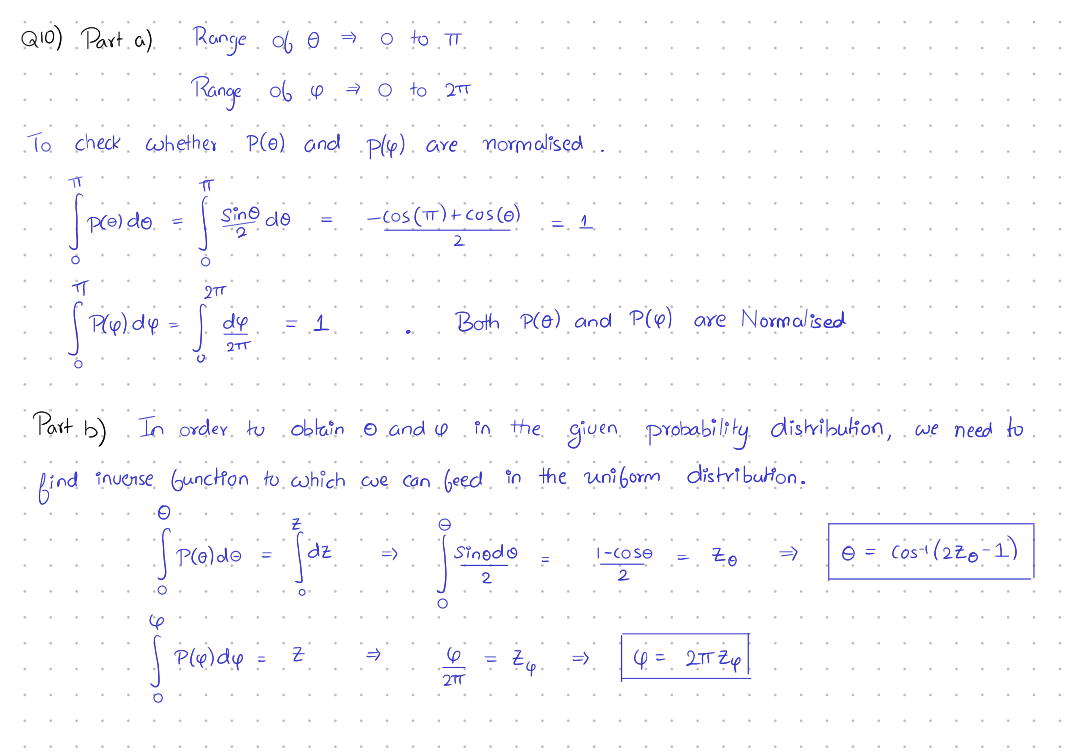 Q10) Part a) Range of θ ⇒ 0 to π
Range of φ ⇒ 0 to 2π
To check whether P(θ) and P(φ) are normalised.
∫₀^π P(θ)dθ = ∫₀^π Sinθ/2 dθ = (-cos(π)+cos(0))/2 = 1
∫₀^π P(φ)dφ = ∫₀^2π dφ/2π = 1 . Both P(θ) and P(φ) are Normalised
Part b) In order to obtain θ and φ in the given probability distribution, we need to
find inverse function to which we can feed in the uniform distribution.
∫₀^θ P(θ)dθ = ∫₀^z dz ⇒ ∫₀^θ Sinθdθ/2 = (1-cosθ)/2 = z_θ ⇒ θ = cos⁻¹(2z_θ-1)
∫₀^φ P(φ)dφ = z ⇒ φ/2π = z_φ ⇒ φ = 2πz_φ